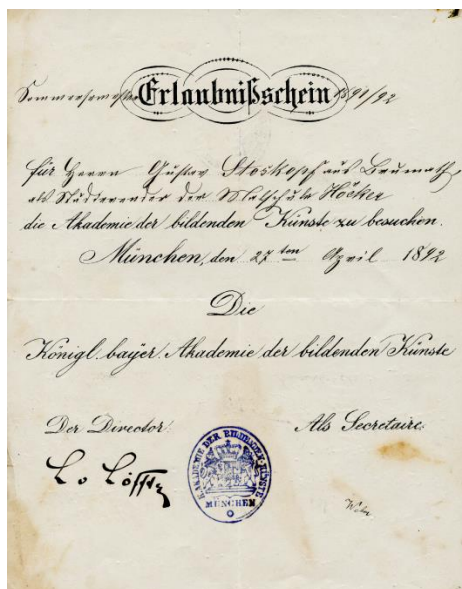 Sommersemester Erlaubnißschein 1891/92
für Herrn Gustav Stoskopf aus Brumath,
als Studierender der Malschule Höcker
die Akademie der bildenden Künste zu besuchen.
München, den 27ten April 1892
Die
Königl. bayer. Akademie der bildenden Künste
Der Director:
Als Secretaire:
L v Löfftz
AKADEMIE DER BILDENDEN KÜNSTE
MÜNCHEN